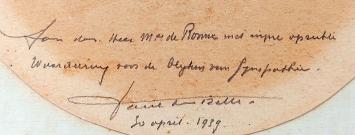 Aan den Heer Mr de Ronne met mijne oprechte
Waardeering voor de blijken van Sympathie.
30 april. 1939